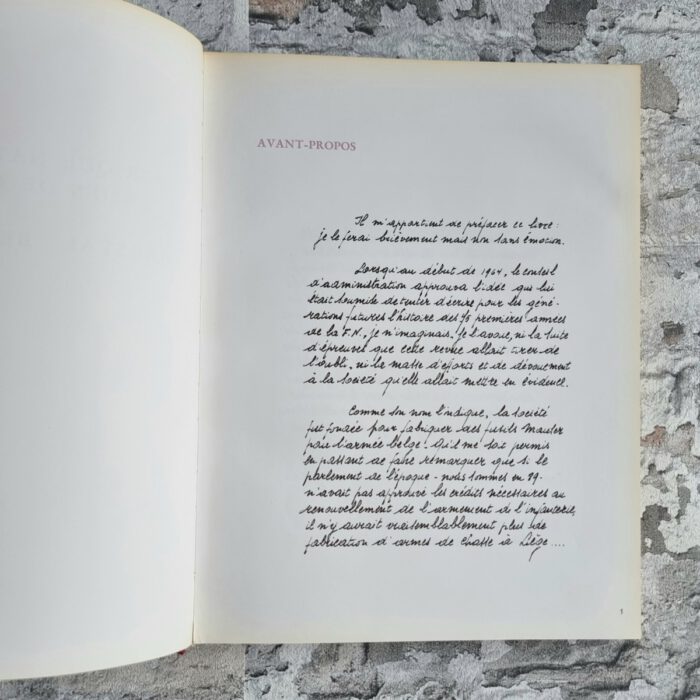 AVANT-PROPOS
Il m'appartient de préfacer ce livre :
je le ferai brièvement mais non sans émotion.
Lorsqu'au début de 1964, le conseil
d'administration approuva l'idée qui lui
était soumise de tenter d'écrire pour les géné-
rations futures l'histoire des 75 premières années
de la F.N., je n'imaginais, je l'avoue, ni la suite
d'épreuves que cette revue allait tirer de
l'oubli, ni la masse d'efforts et de dévouement
à la société qu'elle allait mettre en évidence.
Comme son nom l'indique, la société
fut fondée pour fabriquer des fusils Mauser
pour l'armée belge. Qu'il me soit permis
en passant de faire remarquer que si le
parlement de l'époque - nous sommes en 89 -
n'avait pas approuvé les crédits nécessaires au
renouvellement de l'armement de l'infanterie,
il n'y aurait vraisemblablement plus de
fabrication d'armes de chasse à Liège ....
1